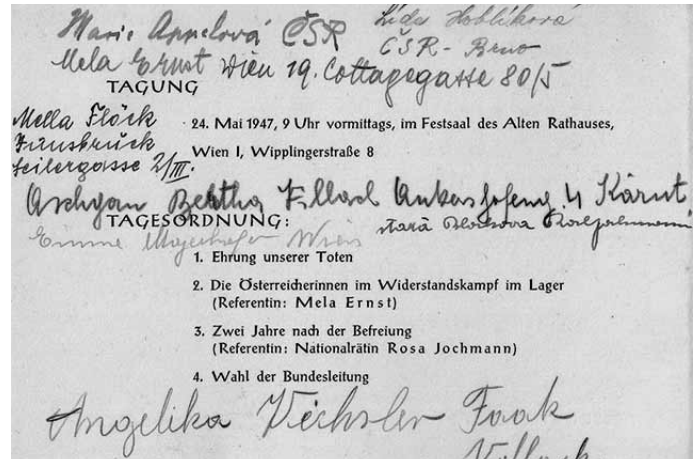 Marie Appelová ČSR
Lída Hoblíková
ČSR - Brno
Mela Ernst Wien 19. Cottagegasse 80/5
TAGUNG
Mella Flöck
Innsbruck
Seilergasse 2/III.
24. Mai 1947, 9 Uhr vormittags, im Festsaal des Alten Rathauses,
Wien I, Wipplingerstraße 8
Bertha Villach 4 Kärnt.
TAGESORDNUNG:
Wien
1. Ehrung unserer Toten
2. Die Österreicherinnen im Widerstandskampf im Lager
(Referentin: Mela Ernst)
3. Zwei Jahre nach der Befreiung
(Referentin: Nationalrätin Rosa Jochmann)
4. Wahl der Bundesleitung
Angelika Faak
Villach